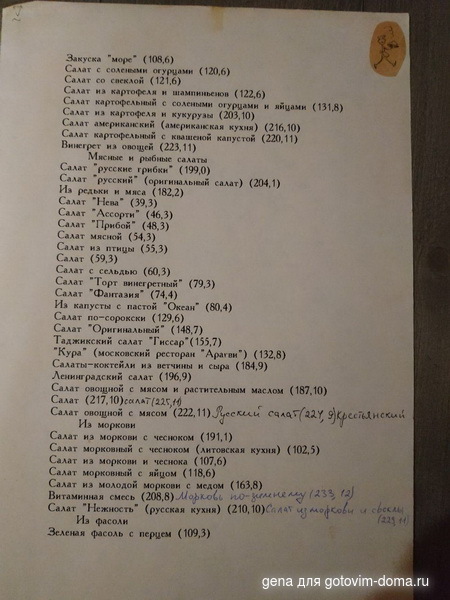 Закуска "море" (108,6)
Салат с солеными огурцами (120,6)
Салат со свеклой (121,6)
Салат из картофеля и шампиньенов (122,6)
Салат картофельный с солеными огурцами и яйцами (131,8)
Салат из картофеля и кукурузы (203,10)
Салат американский (американская кухня) (216,10)
Салат картофельный с квашеной капустой (220,11)
Винегрет из овощей (223,11)
Мясные и рыбные салаты
Салат "русские грибки" (199,0)
Салат "русский" (оригинальный салат) (204,1)
Из редьки и мяса (182,2)
Салат "Нева" (39,3)
Салат "Ассорти" (46,3)
Салат "Прибой" (48,3)
Салат мясной (54,3)
Салат из птицы (55,3)
Салат (59,3)
Салат с сельдью (60,3)
Салат "Торт винегретный" (79,3)
Салат "Фантазия" (74,4)
Из капусты с пастой "Океан" (80,4)
Салат по-сорокски (129,6)
Салат "Оригинальный" (148,7)
Таджикский салат "Гиссар"(155,7)
"Кура" (московский ресторан "Арагви") (132,8)
Салаты-коктейли из ветчины и сыра (184,9)
Ленинградский салат (196,9)
Салат овощной с мясом и растительным маслом (187,10)
Салат (217,10) салат (225,11)
Салат овощной с мясом (222,11) Русский салат (227, 9) Крестьянский
Из моркови
Салат из моркови с чесноком (191,1)
Салат морковный с чесноком (литовская кухня) (102,5)
Салат из моркови и чеснока (107,6)
Салат морковный с яйцом (118,6)
Салат из молодой моркови с медом (163,8)
Витаминная смесь (208,8) Морковь по-зеленому (233, 12)
Салат "Нежность" (русская кухня) (210,10) Салат из моркови и свеклы
(229,11)
Из фасоли
Зеленая фасоль с перцем (109,3)
gena для gotovim-doma.ru